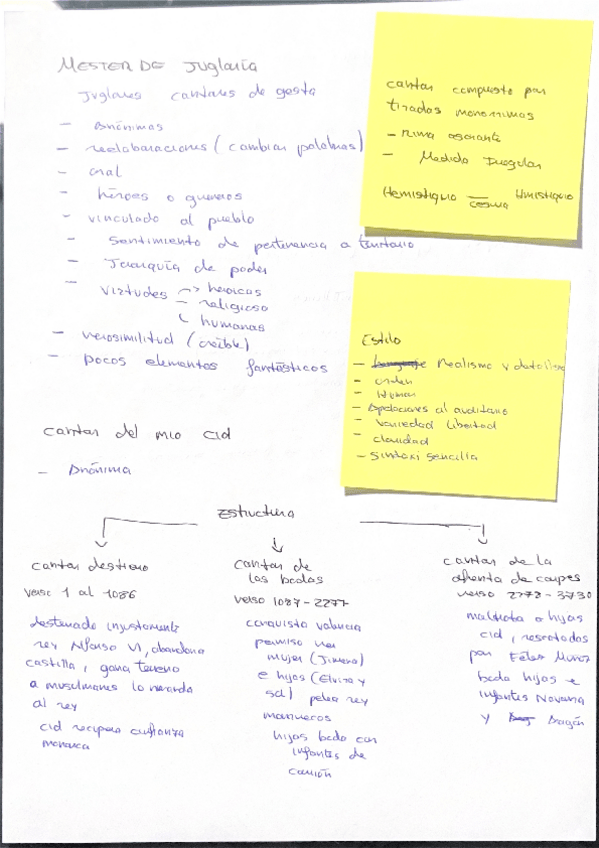 MESTER DE JUGLARÍA
Juglares cantares de gesta
- Anónimas
- reelaboraciones (cambiar palabras)
- oral
- héroes o guerreros
- vinculado al pueblo
- Sentimiento de pertinencia a territorio
- Jerarquía de poder
- Virtudes -> heroicas
- religioso
humanas
- verosimilitud (creíble)
- pocos elementos fantásticos
cantar compuesto por
tiradas monorrimas
- rima asonante
- Medida Irregular
Hemistiquio — Hmistiquio
cesura
Estilo
- Realismo y
- orden
- Humor
- Apelaciones al auditorio
- Variedad libertad
- claridad
- Sintaxi sencilla
cantar del mio Cid
- Anónima
Estructura
cantar destierro
verso 1 al 1086
desterrado injustamente
rey Alfonso VI, abandona
Castilla, gana terreno
a musulmanes lo manda
al rey
cid recupera confianza
monarca
cantar de
las bodas
verso 1087-2277
conquista valencia
permiso ver
mujer (Jimena)
e hijas (Elvira y
sol) pelea rey
marruecos
hijas boda con
infantes de
carrión
cantar de la
afrenta de corpes
verso 2278-3730
maltrata a hijas
cid, rescatados
por Félez Muñoz
boda hijas e
infantes Navarra
y Aragón